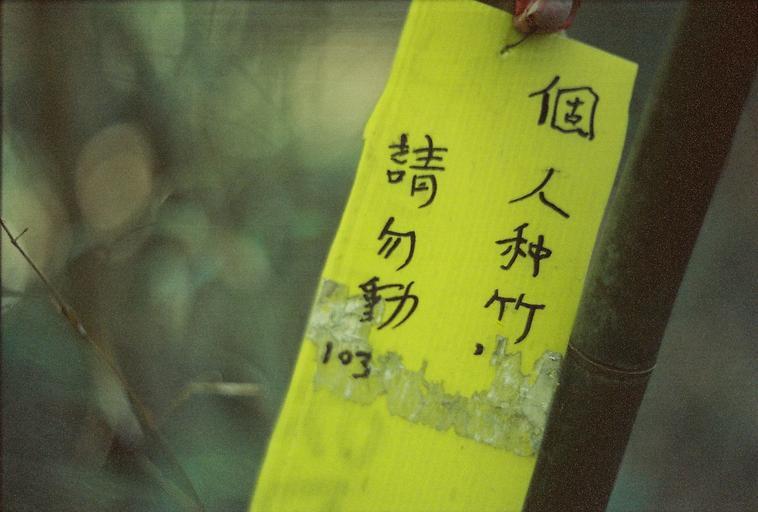 個人种竹,
請勿動
103